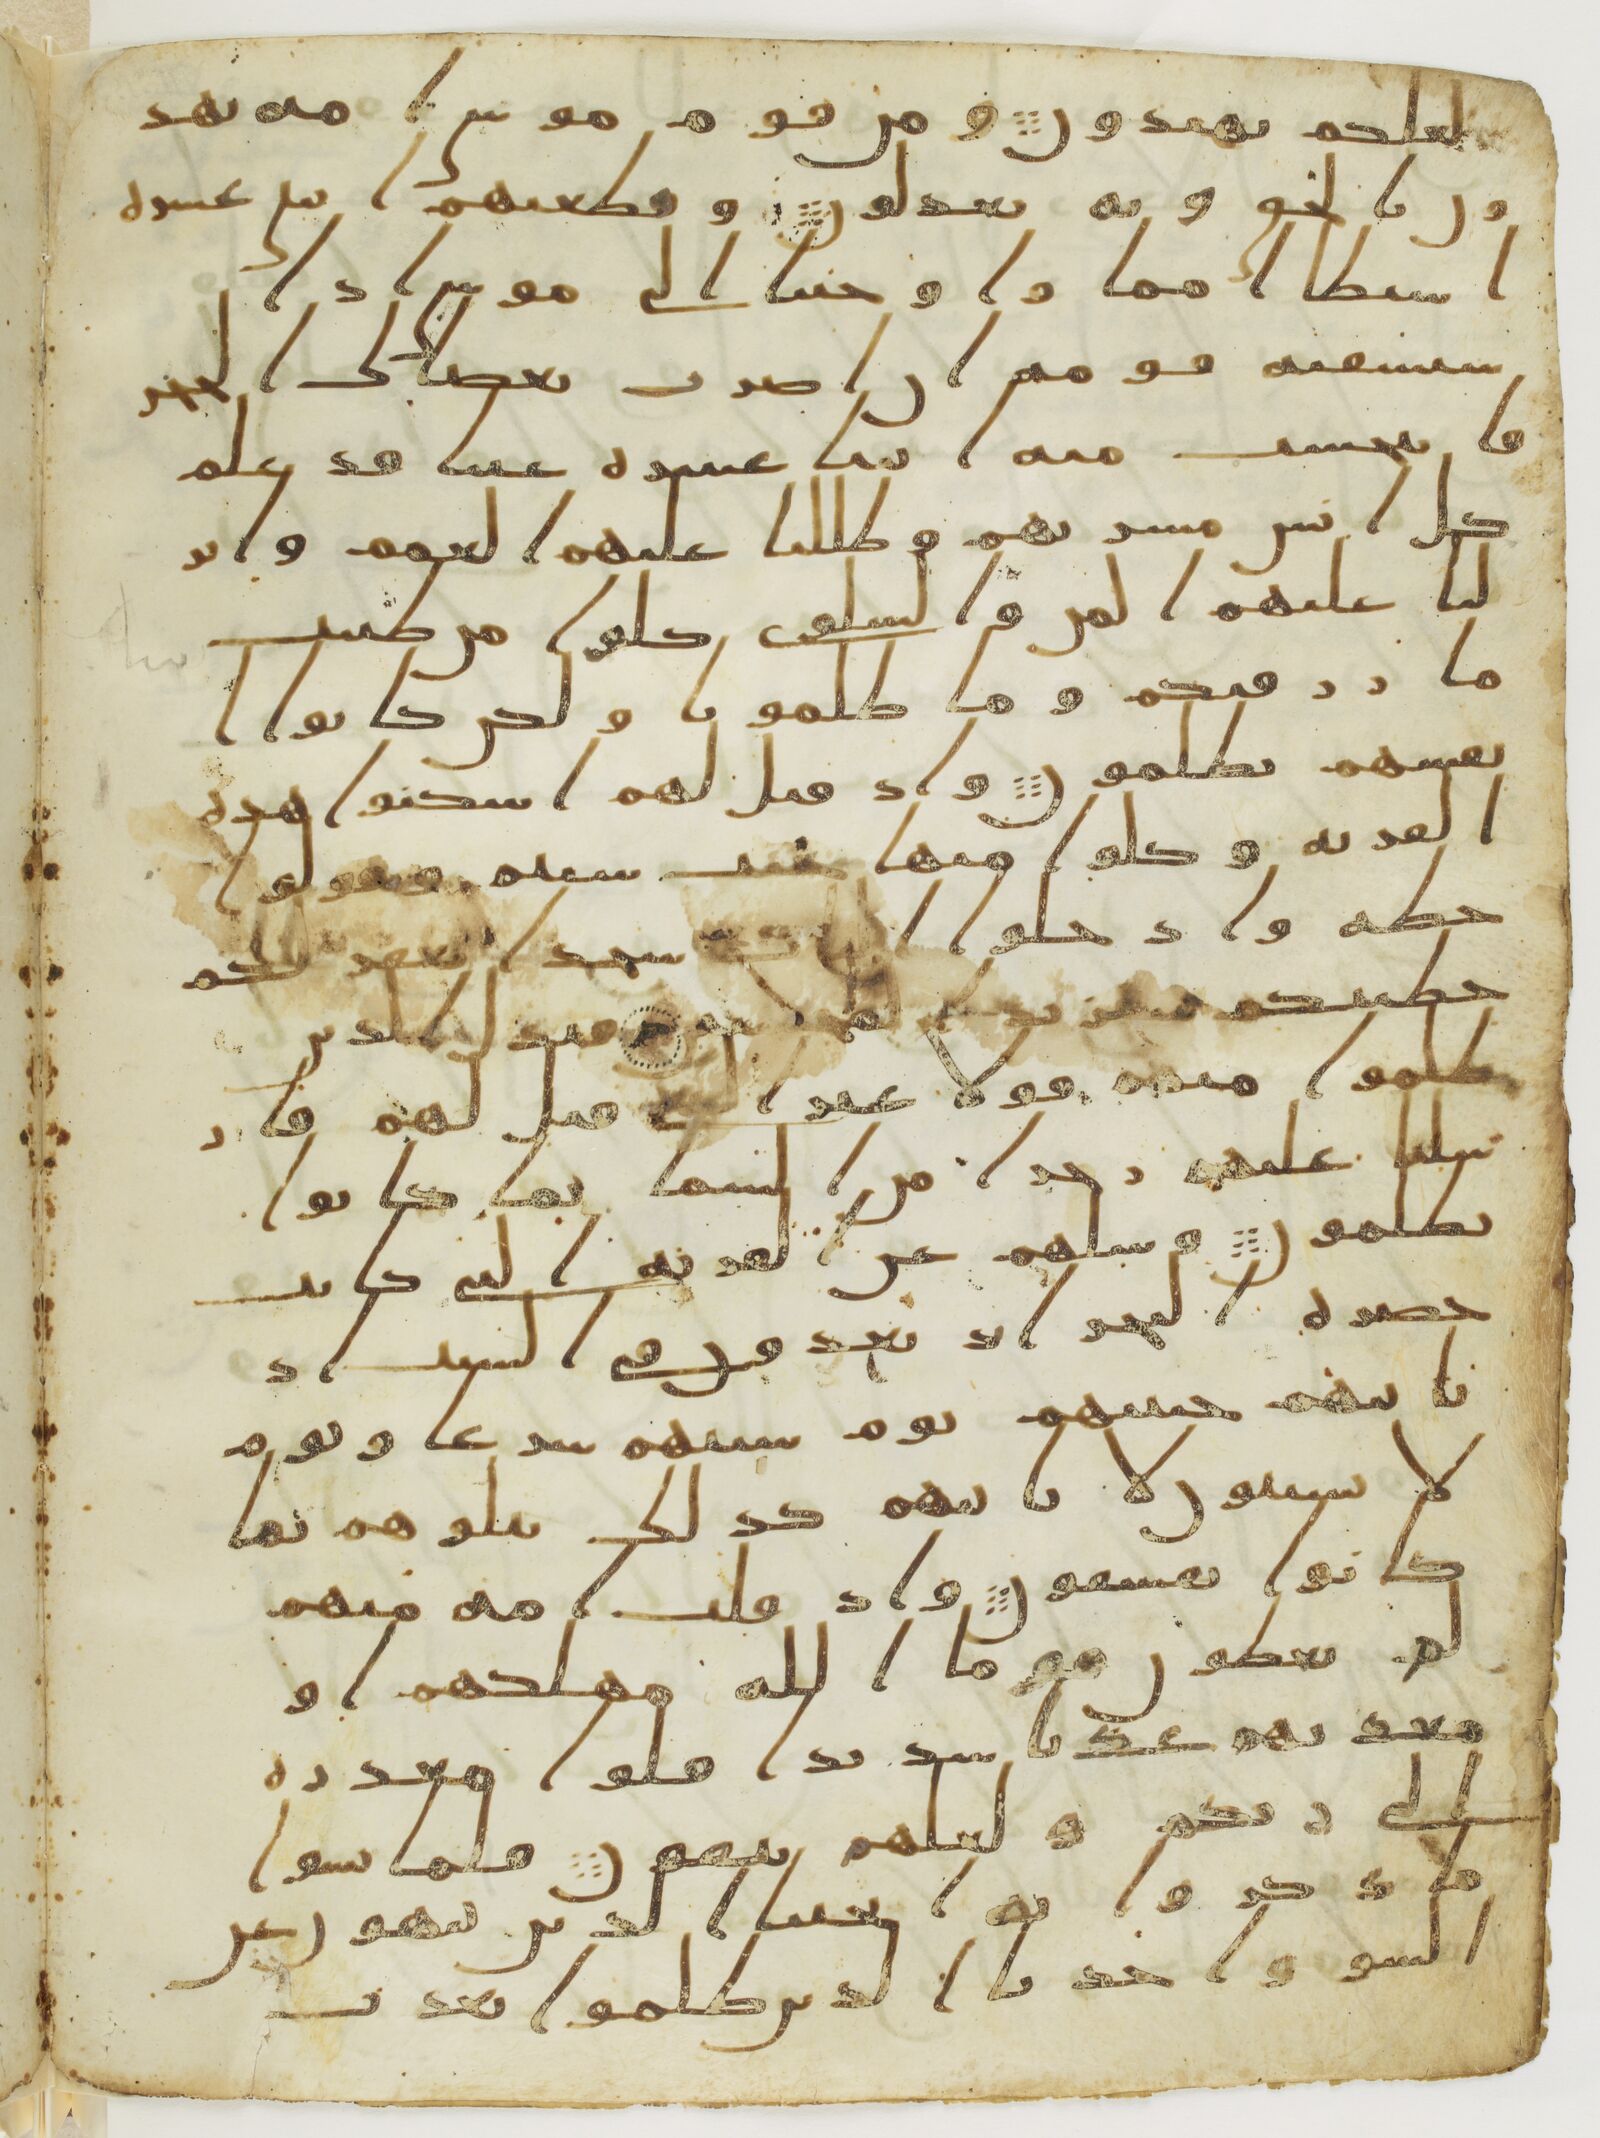 لعلكم تهتدون ومن قوم موسى امه يهد
ون بالحق وبه يعدلون وقطعنهم اثنى عشره
اسبطا امما واوحينا الى موسى اذا
ستسقيه قومه ان اضرب بعصاك الحجر
فانبجست منه اثنتا عشره عينا قد علم
كل انس مشربهم وظللنا عليهم الغمم وانز
لنا عليهم المن والسلوى كلوا من طيبت
ما رزقنكم وما ظلمونا ولكن كانوا ا
نفسهم يظلمون واذ قيل لهم اسكنوا هذه
القريه وكلوا منها حيث شيتم وقولوا
حطه وادخلوا الباب سجدا نغفر لكم
خطيتكم سنزيد المحسنين فبدل الذين
ظلموا منهم قولا غير الذى قيل لهم فار
سلنا عليهم رجزا من السما بما كانوا
يظلمون وسلهم عن القريه التى كانت
حضره البحر اذ يعدون فى السبت اذ
تاتيهم حيتنهم يوم سبتهم شرعا ويوم
لا يسبتون لا تاتيهم كذلك نبلوهم بما
كانوا يفسقون واذ قلت امه منهم
لم تعظون قوما الله مهلكهم او
معذبهم عذبا شديدا قلوا معذره
الى ربكم ولعلهم يتقون فلما نسوا
ما ذكروا به انجينا الذين ينهون عن
السو واخذنا الذين ظلموا بعذب